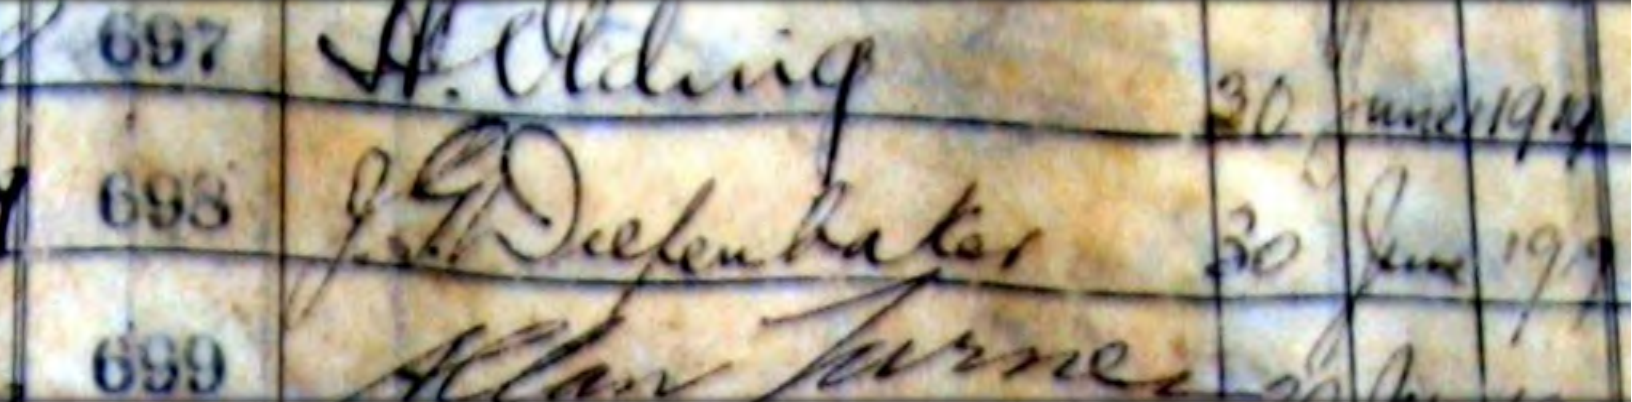 697 H. Olding 30 June 1919
698 J. G. Diefenbaker 30 June 1919
699 Allan Turner